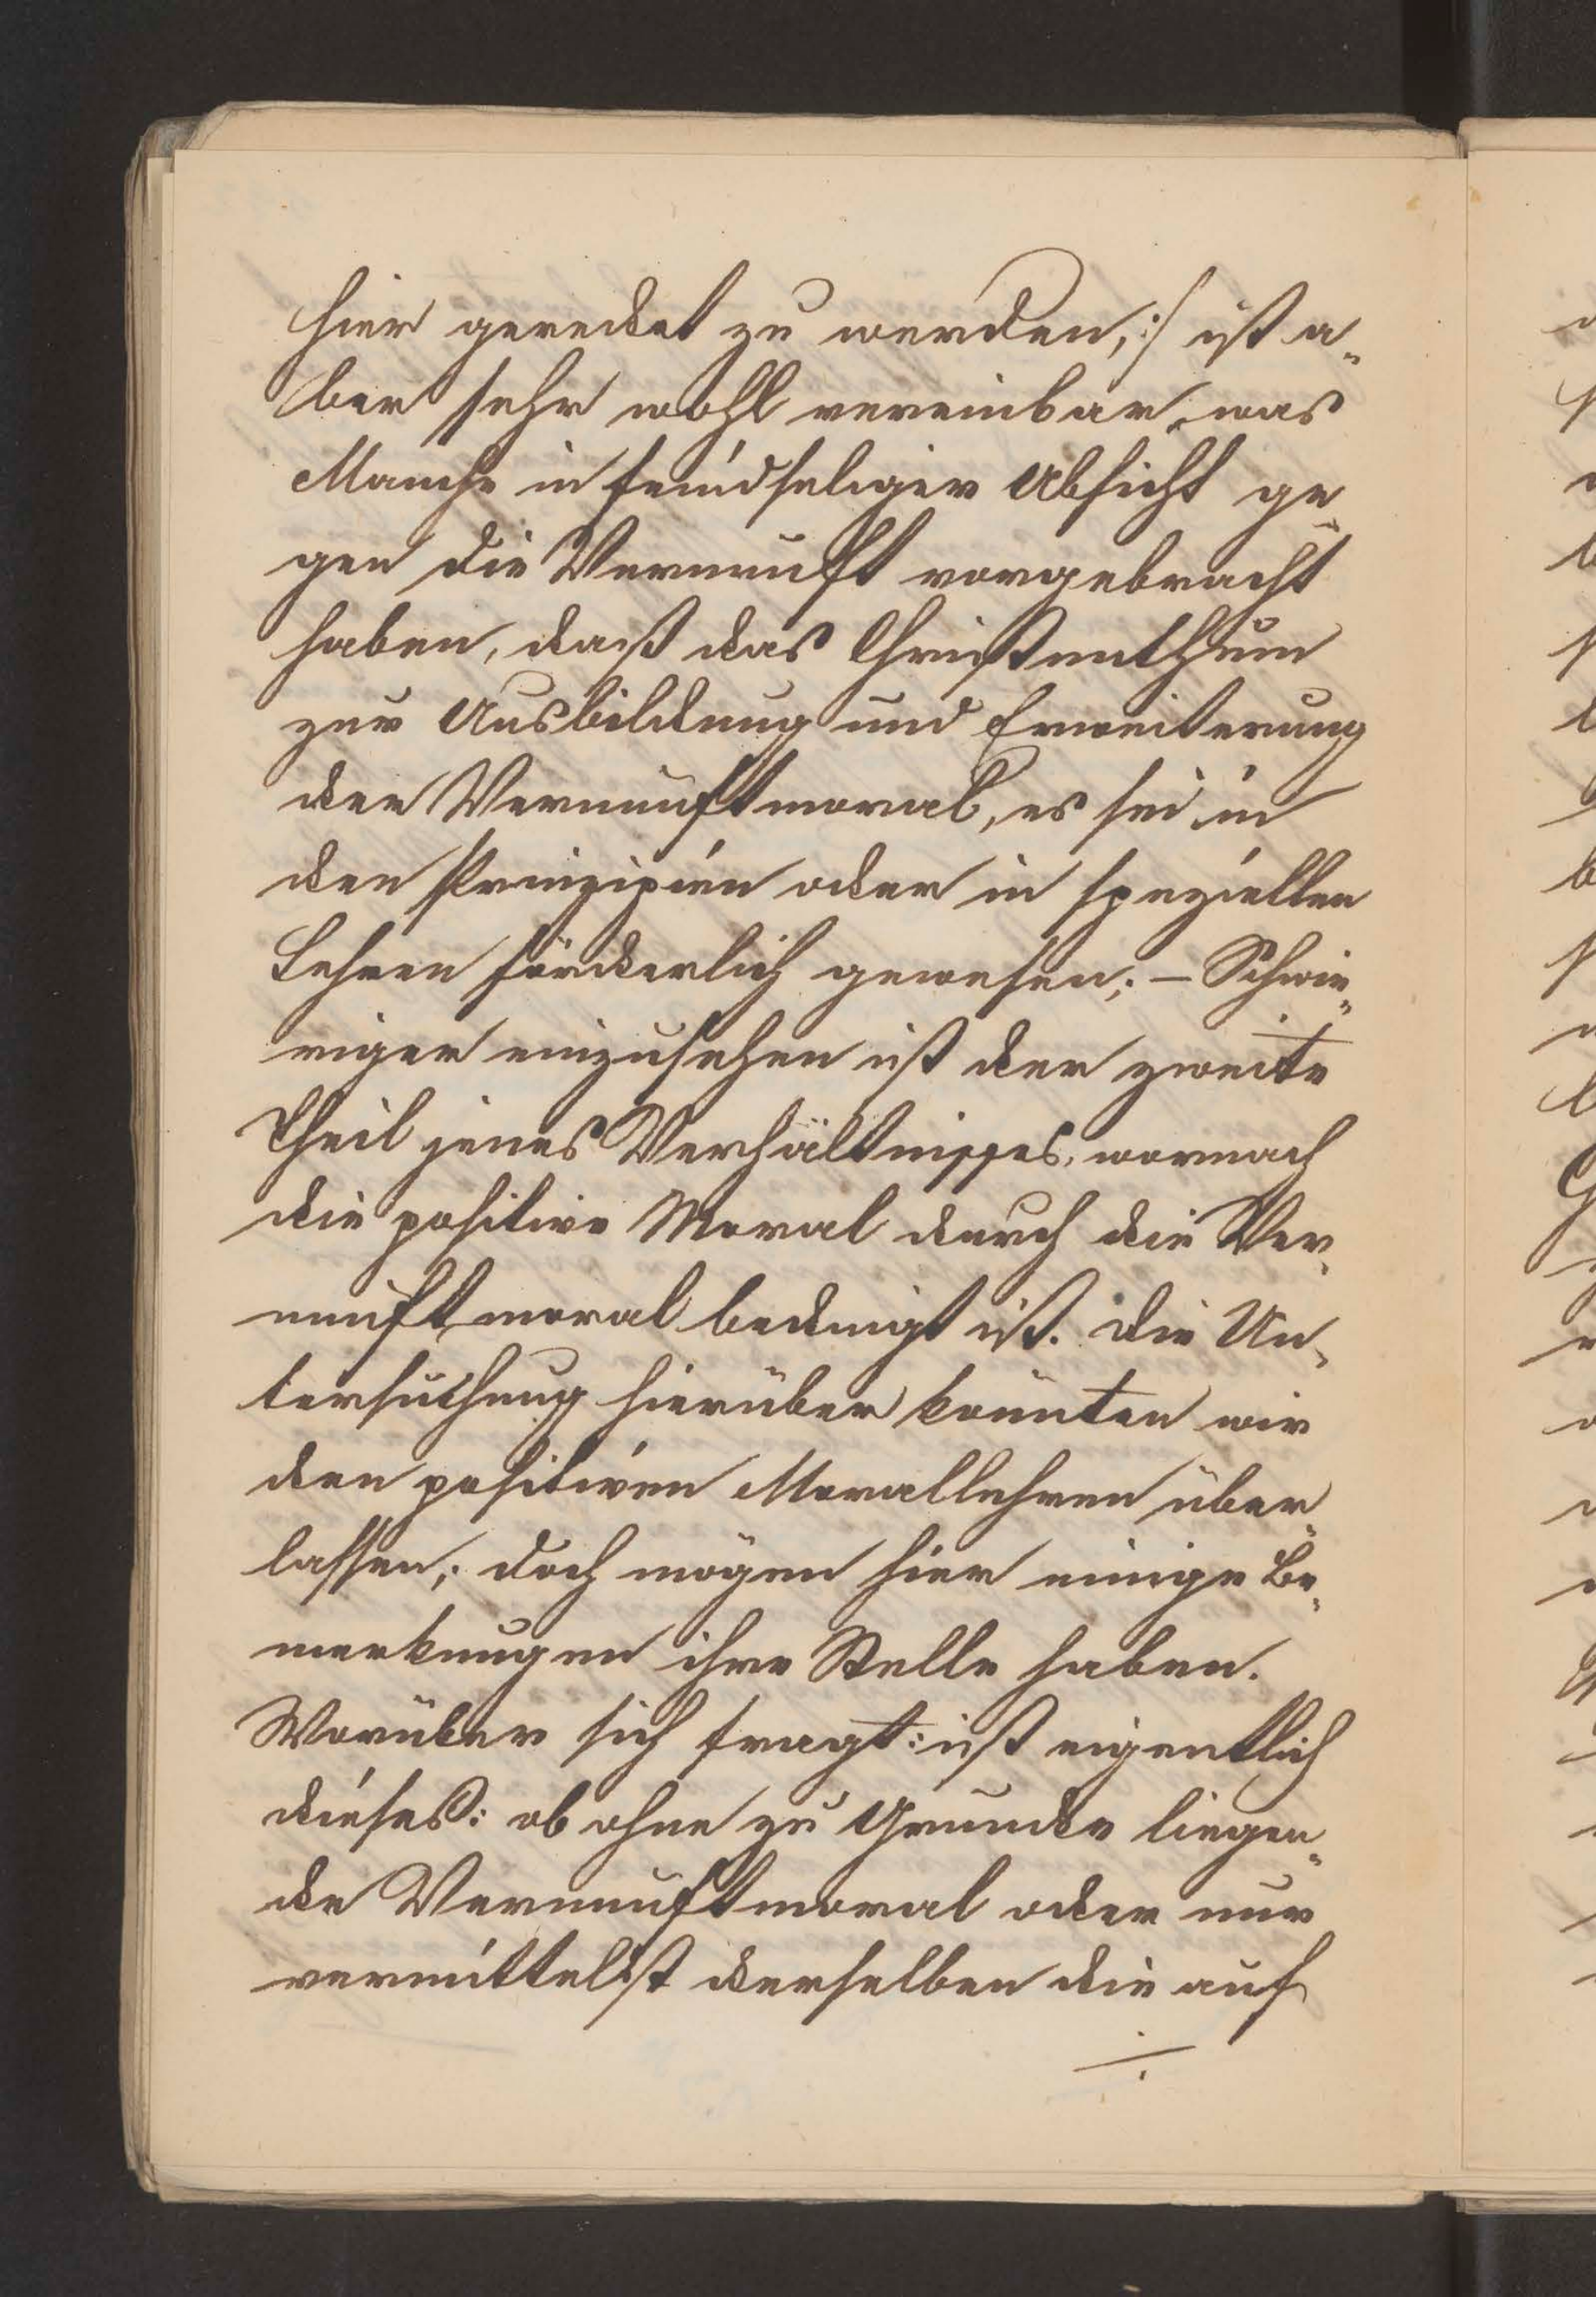 hier geredet zu werden,:/ ist a-
ber sehr wohl vereinbar, was
Manche in feindseliger Absicht ge-
gen die Vernunft vorgebracht
haben, daß das Christenthum
zur Ausbildung und Erweiterung
der Vernunftmoral, es sei in
den Prinzipien oder in speziellen
Lehren förderlich gewesen; – Schwie-
riger einzusehen ist der zweite
Theil jenes Verhältnisses, wornach
die positive Moral durch die Ver-
nunftmoral bedingt ist. Die Un-
tersuchung hierüber könnten wir
den positiven Morallehren über-
lassen; doch mögen hier einige Be-
merkungen ihre Stelle haben.
Worüber sich fragt: ist eigentlich
dieses: ob ohne zu Grunde liegen-
de Vernunftmoral oder nur
vermittelst derselben die auf
÷